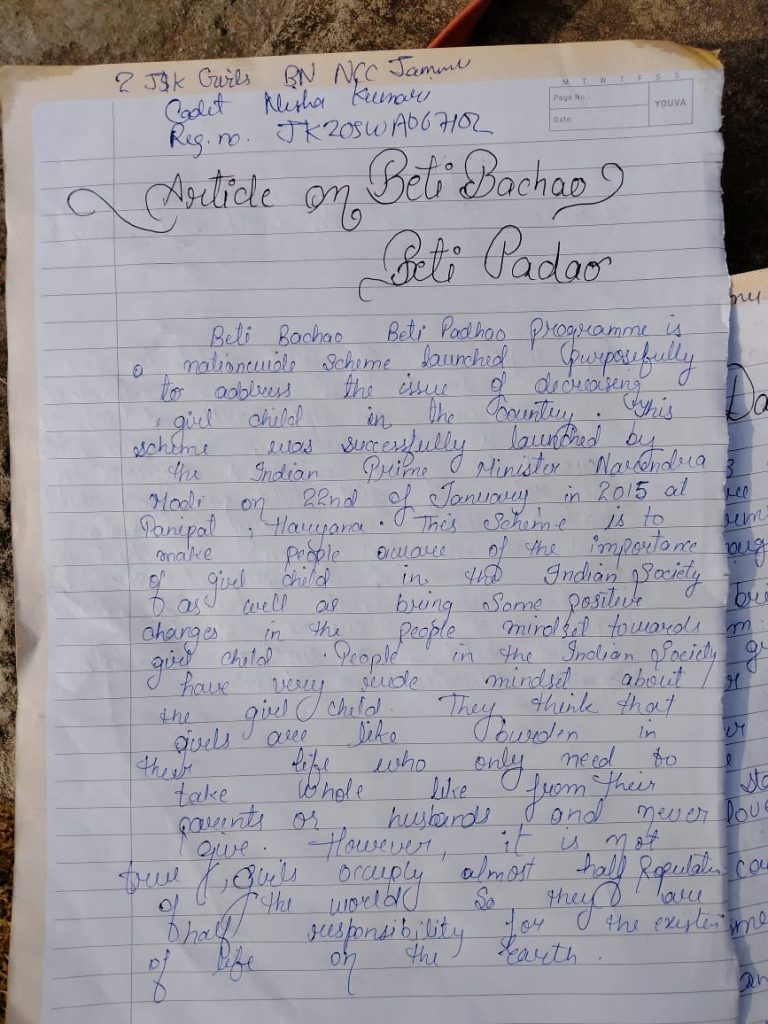 2 J&K Girls BN NCC Jammu
Cadet Nisha Kumari
Reg. no. JK20SWA067102
M T W T F S S
Page No.:
Date:
YOUVA
Article on Beti Bachao
Beti Padao
Beti Bachao Beti Padhao programme is
a nationwide scheme launched purposefully
to address the issue of decreasing
girl child in the country. This
scheme was successfully launched by
the Indian Prime Minister Narendra
Modi on 22nd of January, in 2015 at
Panipat, Haryana. This scheme is to
make people aware of the importance
of girl child in the Indian Society
as well as bring some positive
changes in the people mindset towards
girl child. People in the Indian Society
have very rude mindset about
the girl child. They think that
girls are like burden in
their life who only need to
take whole like from their
parents or husbands and never
give. However, it is not
true, girls occuply almost half Populati
of the world. So they are
half responsibility for the existen
of life on the Earth.